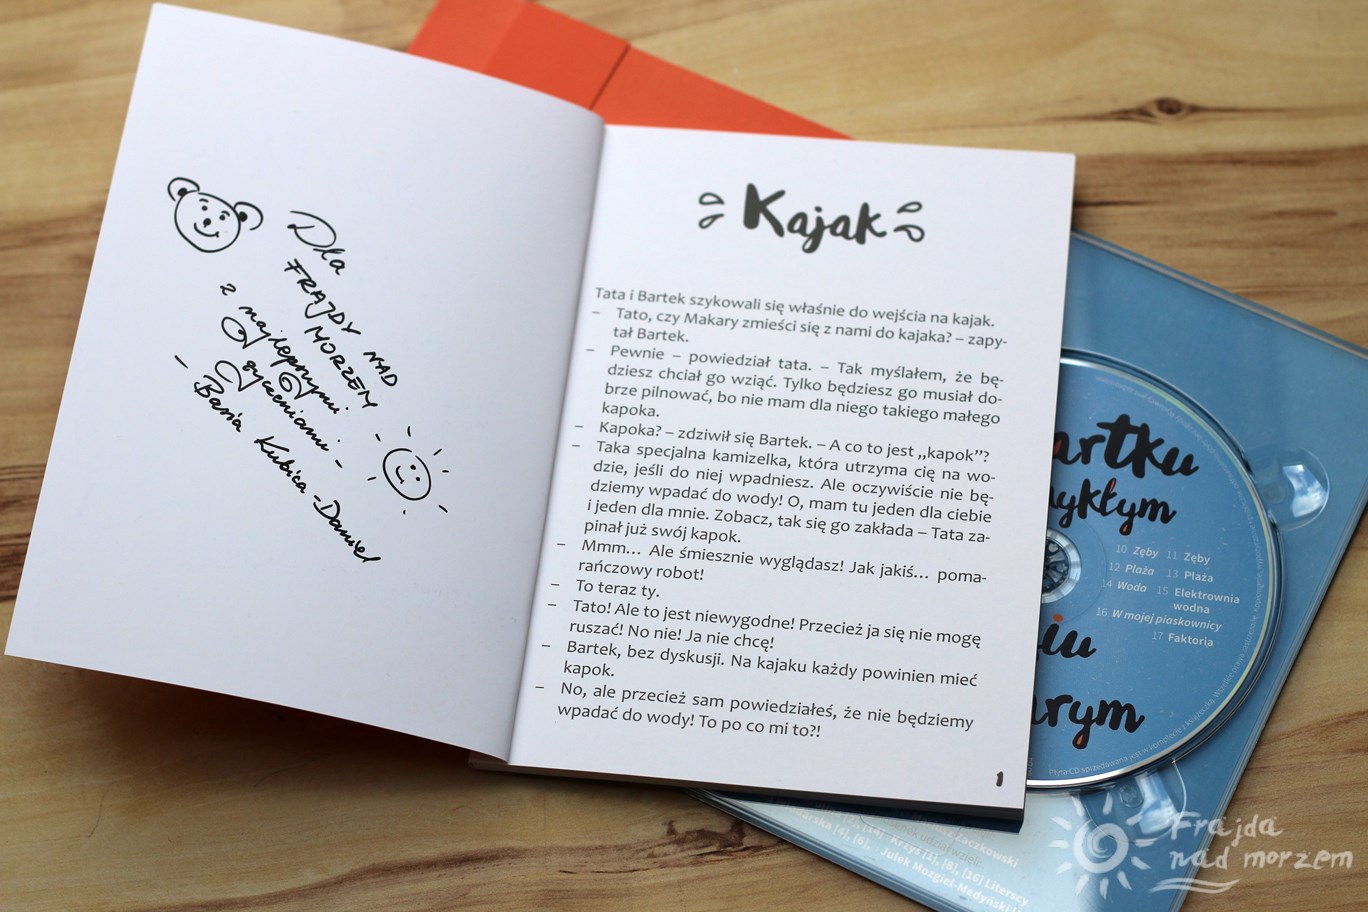 Dla
FRAJDY NAD
MORZEM
z najlepszymi
życzeniami -
- Basia Kubica-Daniel
Kajak
Tata i Bartek szykowali się właśnie do wejścia na kajak.
– Tato, czy Makary zmieści się z nami do kajaka? – zapy-
tał Bartek.
– Pewnie – powiedział tata. – Tak myślałem, że bę-
dziesz chciał go wziąć. Tylko będziesz go musiał do-
brze pilnować, bo nie mam dla niego takiego małego
kapoka.
– Kapoka? – zdziwił się Bartek. – A co to jest „kapok”?
– Taka specjalna kamizelka, która utrzyma cię na wo-
dzie, jeśli do niej wpadniesz. Ale oczywiście nie bę-
dziemy wpadać do wody! O, mam tu jeden dla ciebie
i jeden dla mnie. Zobacz, tak się go zakłada – Tata za-
pinał już swój kapok.
– Mmm... Ale śmiesznie wyglądasz! Jak jakiś... poma-
rańczowy robot!
– To teraz ty.
– Tato! Ale to jest niewygodne! Przecież ja się nie mogę
ruszać! No nie! Ja nie chcę!
– Bartek, bez dyskusji. Na kajaku każdy powinien mieć
kapok.
– No, ale przecież sam powiedziałeś, że nie będziemy
wpadać do wody! To po co mi to?!
1
artku
ykłym
10 Zęby 11 Zęby
12 Plaża 13 Plaża
14 Woda 15 Elektrownia
wodna
16 W mojej piaskownicy
17 Faktoria
iu
arym
Płyta CD sprzedawana jest w komplecie z książeczką.
Żaczkowski
arska [4], [6], Krzyś [1], [8], [16] Literscy
Julek Mozgiel-Medyński
Frajda
nad morzem